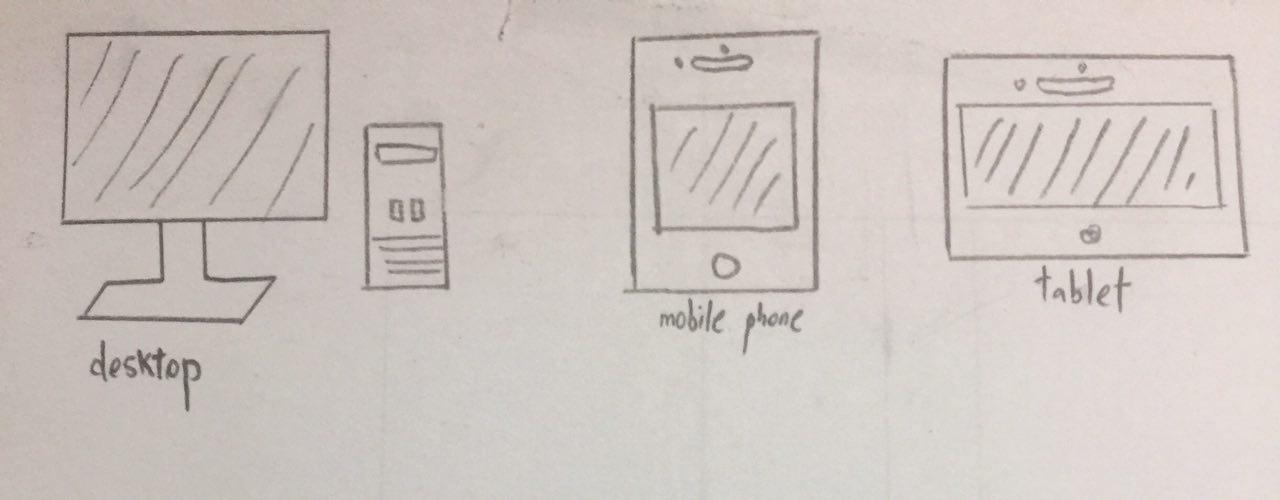 desktop
mobile phone
tablet